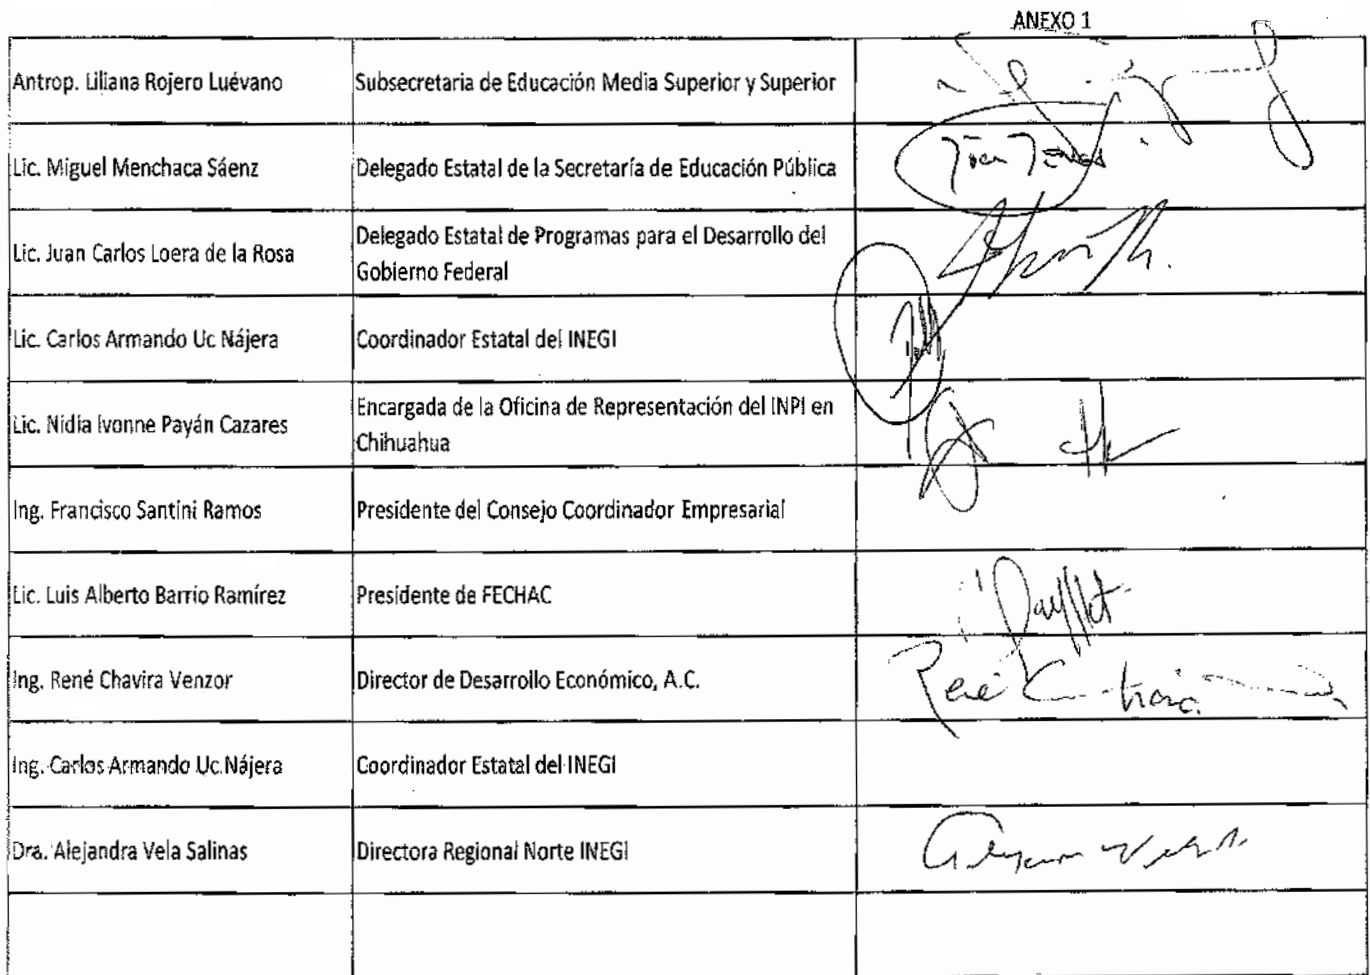 ANEXO 1
Antrop. Liliana Rojero Luévano
Subsecretaria de Educación Media Superior y Superior
Lic. Miguel Menchaca Sáenz
Delegado Estatal de la Secretaría de Educación Pública
Lic. Juan Carlos Loera de la Rosa
Delegado Estatal de Programas para el Desarrollo del
Gobierno Federal
Lic. Carlos Armando Uc Nájera
Coordinador Estatal del INEGI
Lic. Nidia Ivonne Payán Cazares
Encargada de la Oficina de Representación del INPI en
Chihuahua
Ing. Francisco Santini Ramos
Presidente del Consejo Coordinador Empresarial
Lic. Luis Alberto Barrio Ramírez
Presidente de FECHAC
Ing. René Chavira Venzor
Director de Desarrollo Económico, A.C.
René
Ing. Carlos Armando Uc Nájera
Coordinador Estatal del INEGI
Dra. Alejandra Vela Salinas
Directora Regional Norte INEGI